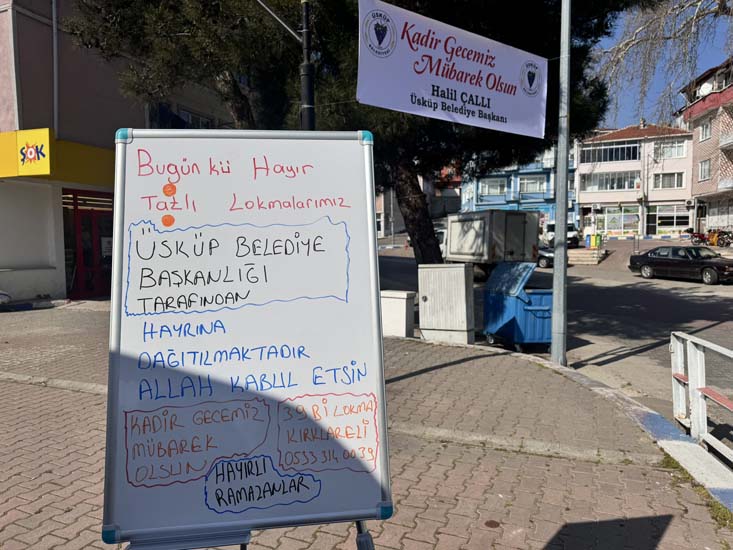 ŞOK
ÜSKÜP
Kadir Gecemiz
Mübarek Olsun
Halil ÇALLI
Üsküp Belediye Başkanı
Bugünkü Hayır
Tatlı Lokmalarımız
ÜSKÜP BELEDİYE
BAŞKANLIĞI
TARAFINDAN
HAYRINA
DAĞITILMAKTADIR
ALLAH KABUL ETSİN
KADİR GECEMİZ
MÜBAREK
OLSUN
39 Bİ LOKMA
KIRKLARELİ
0533 314 00 39
HAYIRLI
RAMAZANLAR